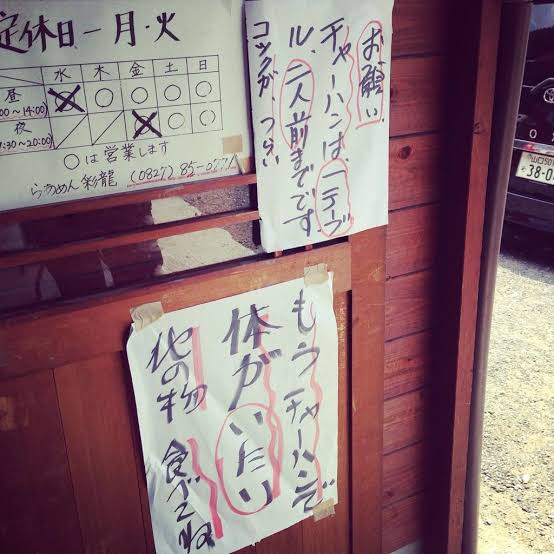 定休日ー月・火
水 木 金 土 日
昼
00~14:00)
夜
7:30~20:00)
○は営業します
らぁめん 彩龍 (0827)85-0771
お願い
チャーハンは、一テーブ
ル、二人前までです。
コックが、つらい
もうチャーハンで
体がいたい
他の物 食べてね
山口501
38-0